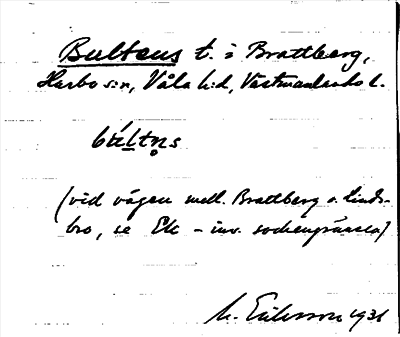 Bultens t. i Brattberg,
Harbo s:n, Våla h:d, Västmanlands l.
búltn̥s
(vid vägen mell. Brattberg o. Linds-
bro, se Ek – inv. sockengränsen)
M. Eriksson 1931